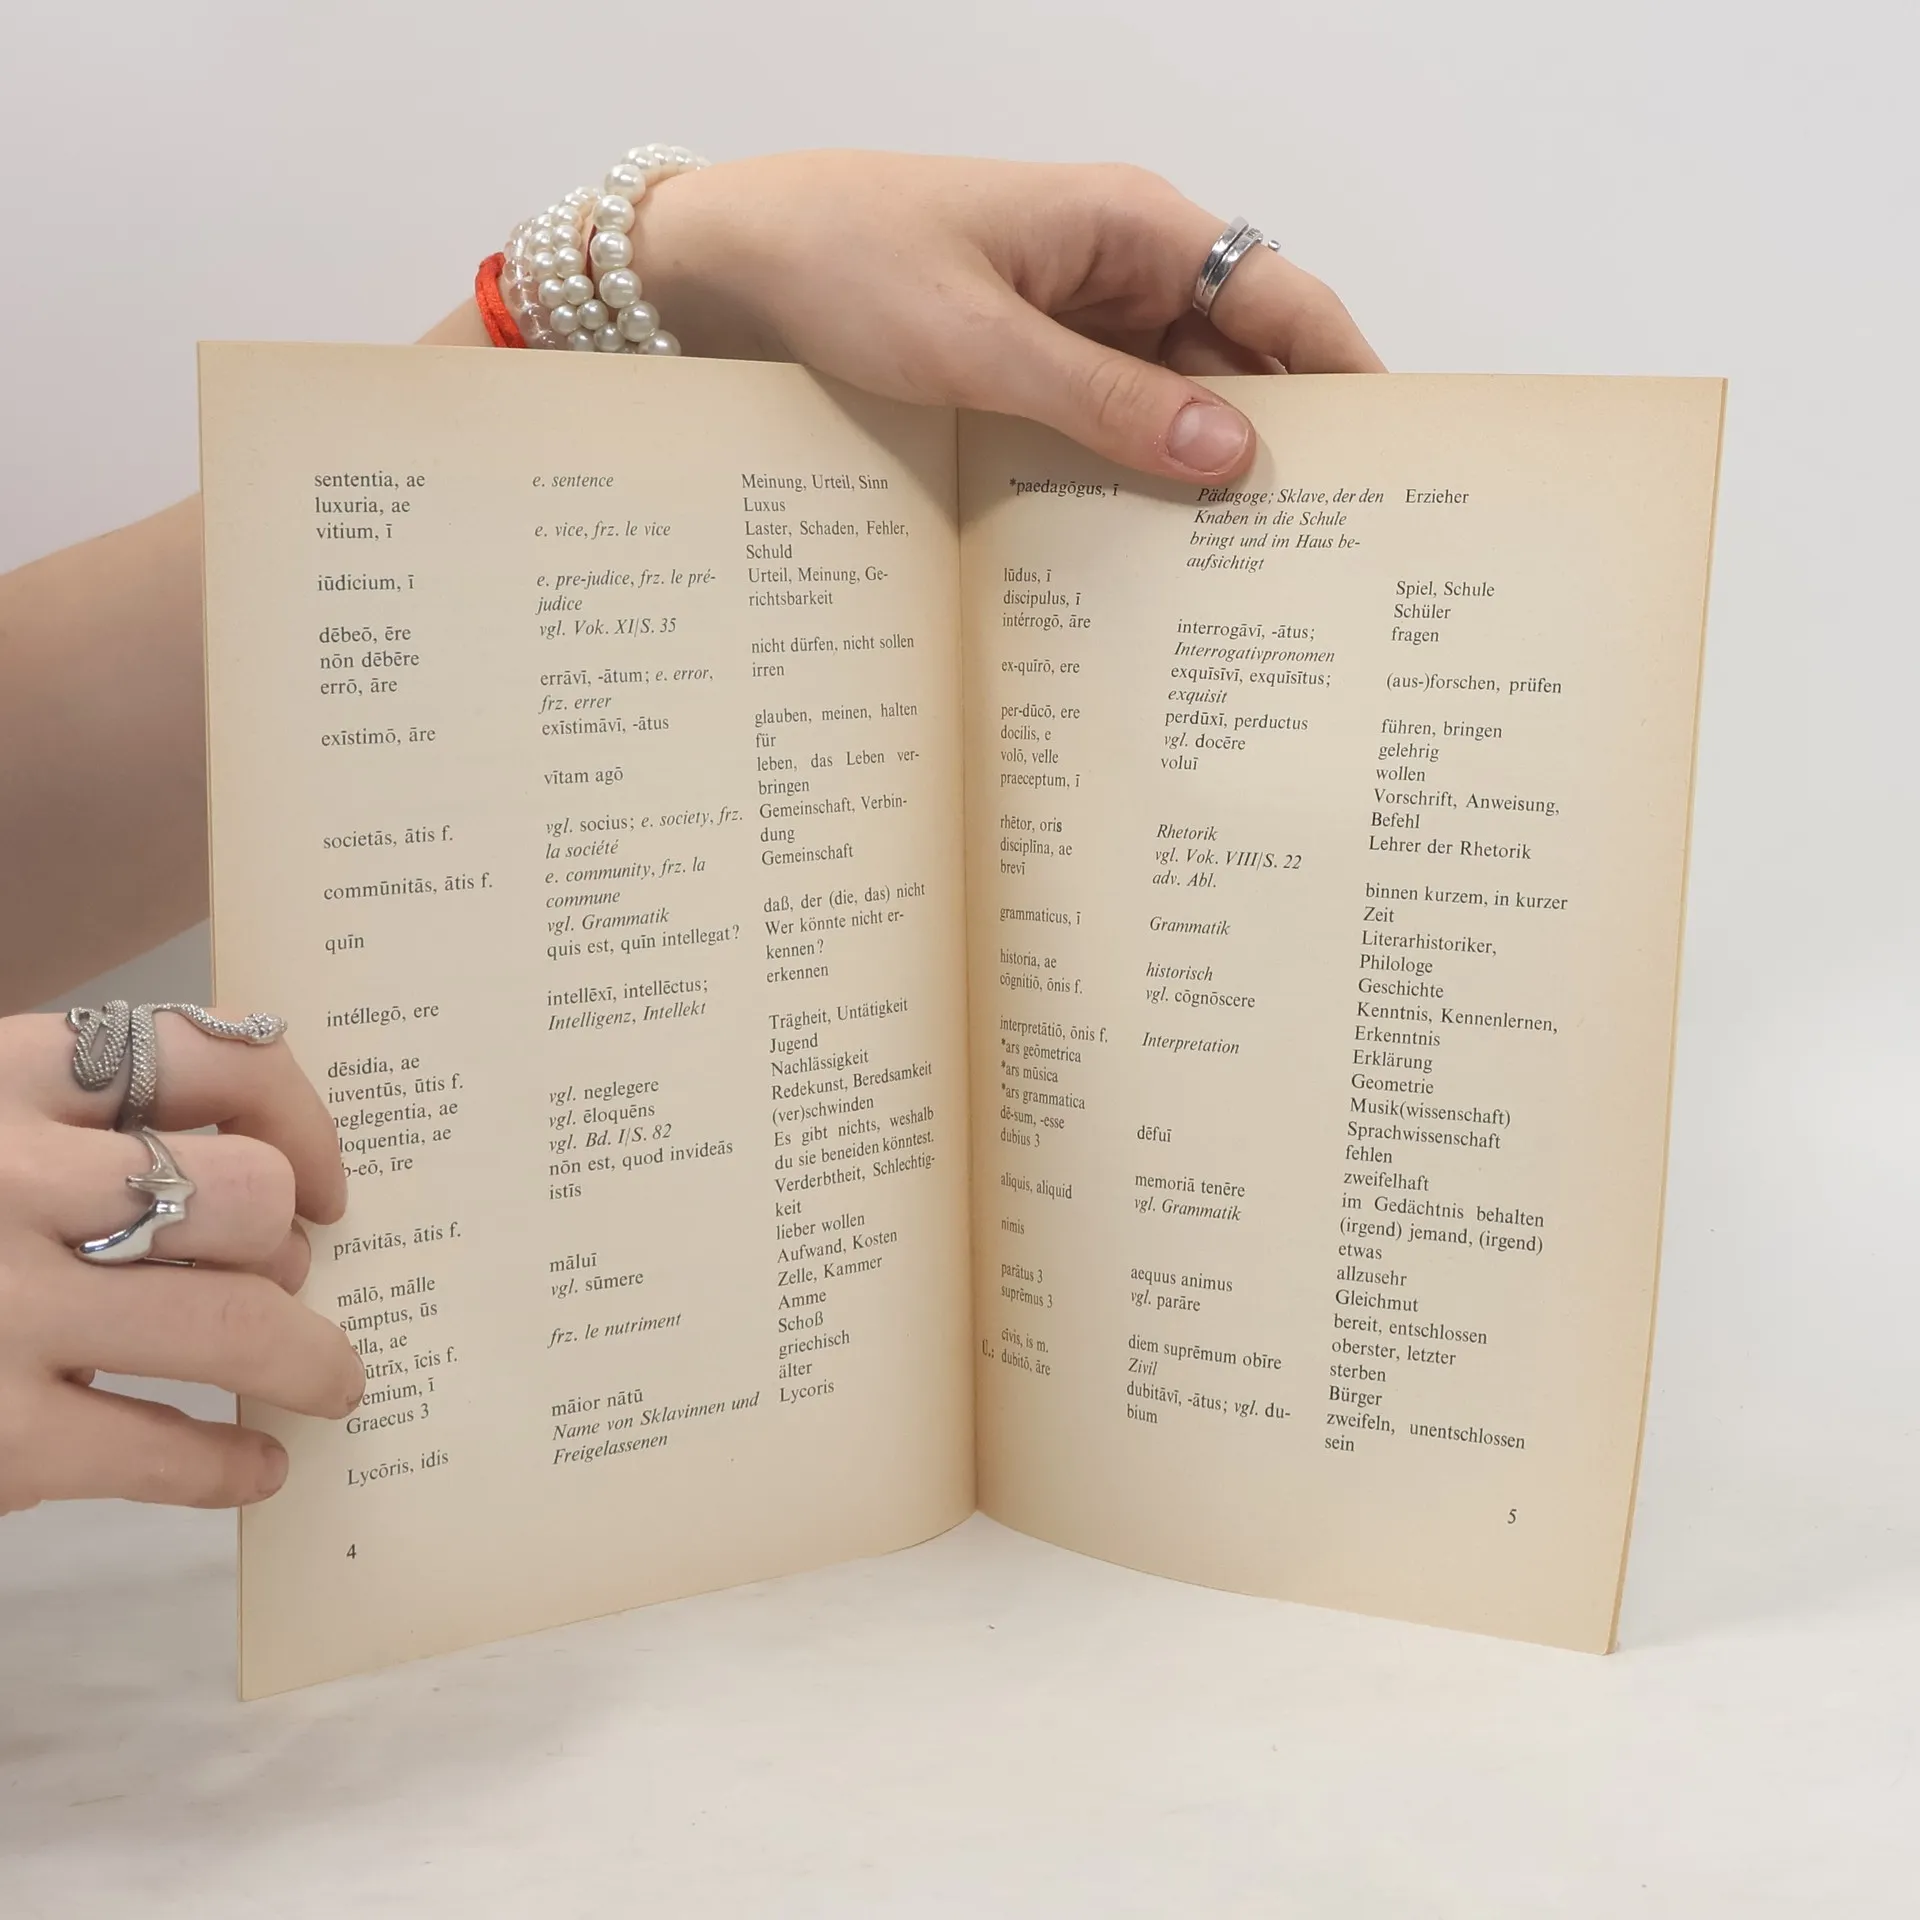 sententia, ae e. sentence Meinung, Urteil, Sinn
luxuria, ae Luxus
vitium, ī e. vice, frz. le vice Laster, Schaden, Fehler,
Schuld
iūdicium, ī e. pre-judice, frz. le pré- Urteil, Meinung, Ge-
judice richtsbarkeit
dēbeō, ēre vgl. Vok. XI/S. 35
nōn dēbēre nicht dürfen, nicht sollen
errō, āre errāvī, -ātum; e. error, irren
frz. errer
exīstimō, āre exīstimāvī, -ātus glauben, meinen, halten
für
vītam agō leben, das Leben ver-
bringen
societās, ātis f. vgl. socius; e. society, frz. Gemeinschaft, Verbin-
la société dung
commūnitās, ātis f. e. community, frz. la Gemeinschaft
commune
quīn vgl. Grammatik daß, der (die, das) nicht
quis est, quīn intellegat? Wer könnte nicht er-
kennen?
intéllegō, ere intellēxī, intellēctus; erkennen
Intelligenz, Intellekt
dēsidia, ae Trägheit, Untätigkeit
iuventūs, ūtis f. Jugend
neglegentia, ae vgl. neglegere Nachlässigkeit
loquentia, ae vgl. ēloquēns Redekunst, Beredsamkeit
b-eō, īre vgl. Bd. I/S. 82 (ver)schwinden
nōn est, quod invideās Es gibt nichts, weshalb
istīs du sie beneiden könntest.
prāvitās, ātis f. Verderbtheit, Schlechtig-
keit
mālō, mālle māluī lieber wollen
sūmptus, ūs vgl. sūmere Aufwand, Kosten
ella, ae Zelle, Kammer
ūtrīx, īcis f. frz. le nutriment Amme
emium, ī Schoß
Graecus 3 griechisch
māior nātū älter
Lycōris, idis Name von Sklavinnen und Lycoris
Freigelassenen
4
*paedagōgus, ī Pädagoge; Sklave, der den Erzieher
Knaben in die Schule
bringt und im Haus be-
aufsichtigt
lūdus, ī Spiel, Schule
discipulus, ī Schüler
intérrogō, āre interrogāvī, -ātus; fragen
Interrogativpronomen
ex-quīrō, ere exquīsīvī, exquīsītus; (aus-)forschen, prüfen
exquisit
per-dūcō, ere perdūxī, perductus führen, bringen
docilis, e vgl. docēre gelehrig
volō, velle voluī wollen
praeceptum, ī Vorschrift, Anweisung,
Befehl
rhētor, oris Rhetorik Lehrer der Rhetorik
disciplīna, ae vgl. Vok. VIII/S. 22
brevī adv. Abl. binnen kurzem, in kurzer
Zeit
grammaticus, ī Grammatik Literarhistoriker,
Philologe
historia, ae historisch Geschichte
cōgnitiō, ōnis f. vgl. cōgnōscere Kenntnis, Kennenlernen,
Erkenntnis
interpretātiō, ōnis f. Interpretation Erklärung
*ars geōmetrica Geometrie
*ars mūsica Musik(wissenschaft)
*ars grammatica Sprachwissenschaft
dē-sum, -esse dēfuī fehlen
dubius 3 zweifelhaft
memoriā tenēre im Gedächtnis behalten
aliquis, aliquid vgl. Grammatik (irgend) jemand, (irgend)
etwas
nimis allzusehr
aequus animus Gleichmut
parātus 3 vgl. parāre bereit, entschlossen
suprēmus 3 oberster, letzter
diem suprēmum obīre sterben
cīvis, is m. Zivil Bürger
Ü.: dubitō, āre dubitāvī, -ātus; vgl. du- zweifeln, unentschlossen
bium sein
5